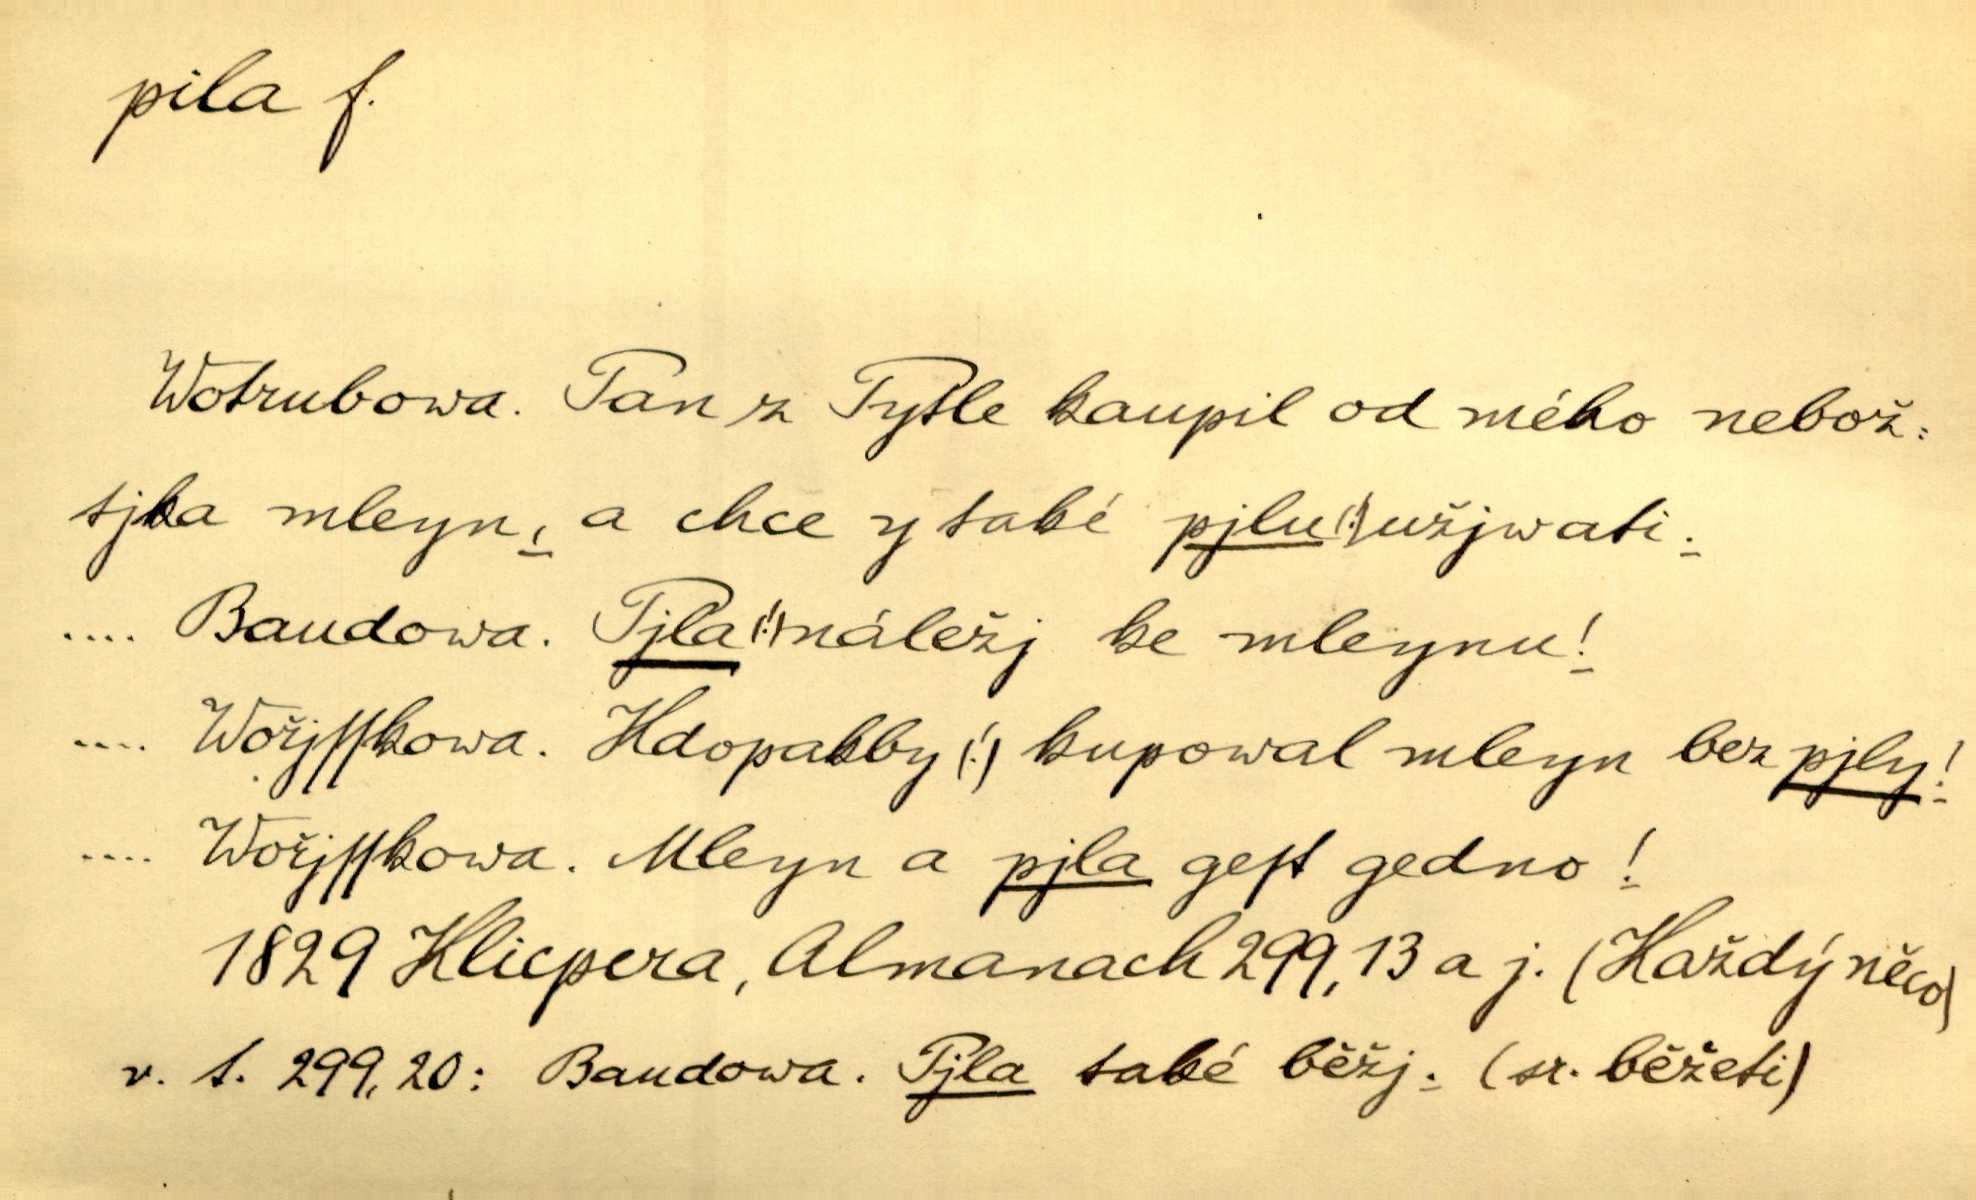 pila f.
Wotrubowa. Pan z Pytle kaupil od mého nebož=
tjka mleyn, a chce y také pjlu (!) užjwati.
.... Baudowa. Pjla (!) náležj ke mleynu!
.... Wořjſſkowa. Kdopakby (!) kupowal mleyn bez pjly!
.... Wořjſſkowa. Mleyn a pjla geſt gedno!
1829 Klicpera, Almanach 299, 13 a j. (Každý něco)
v. t. 299, 20: Baudowa. Pjla také běžj. (sr. běžeti)